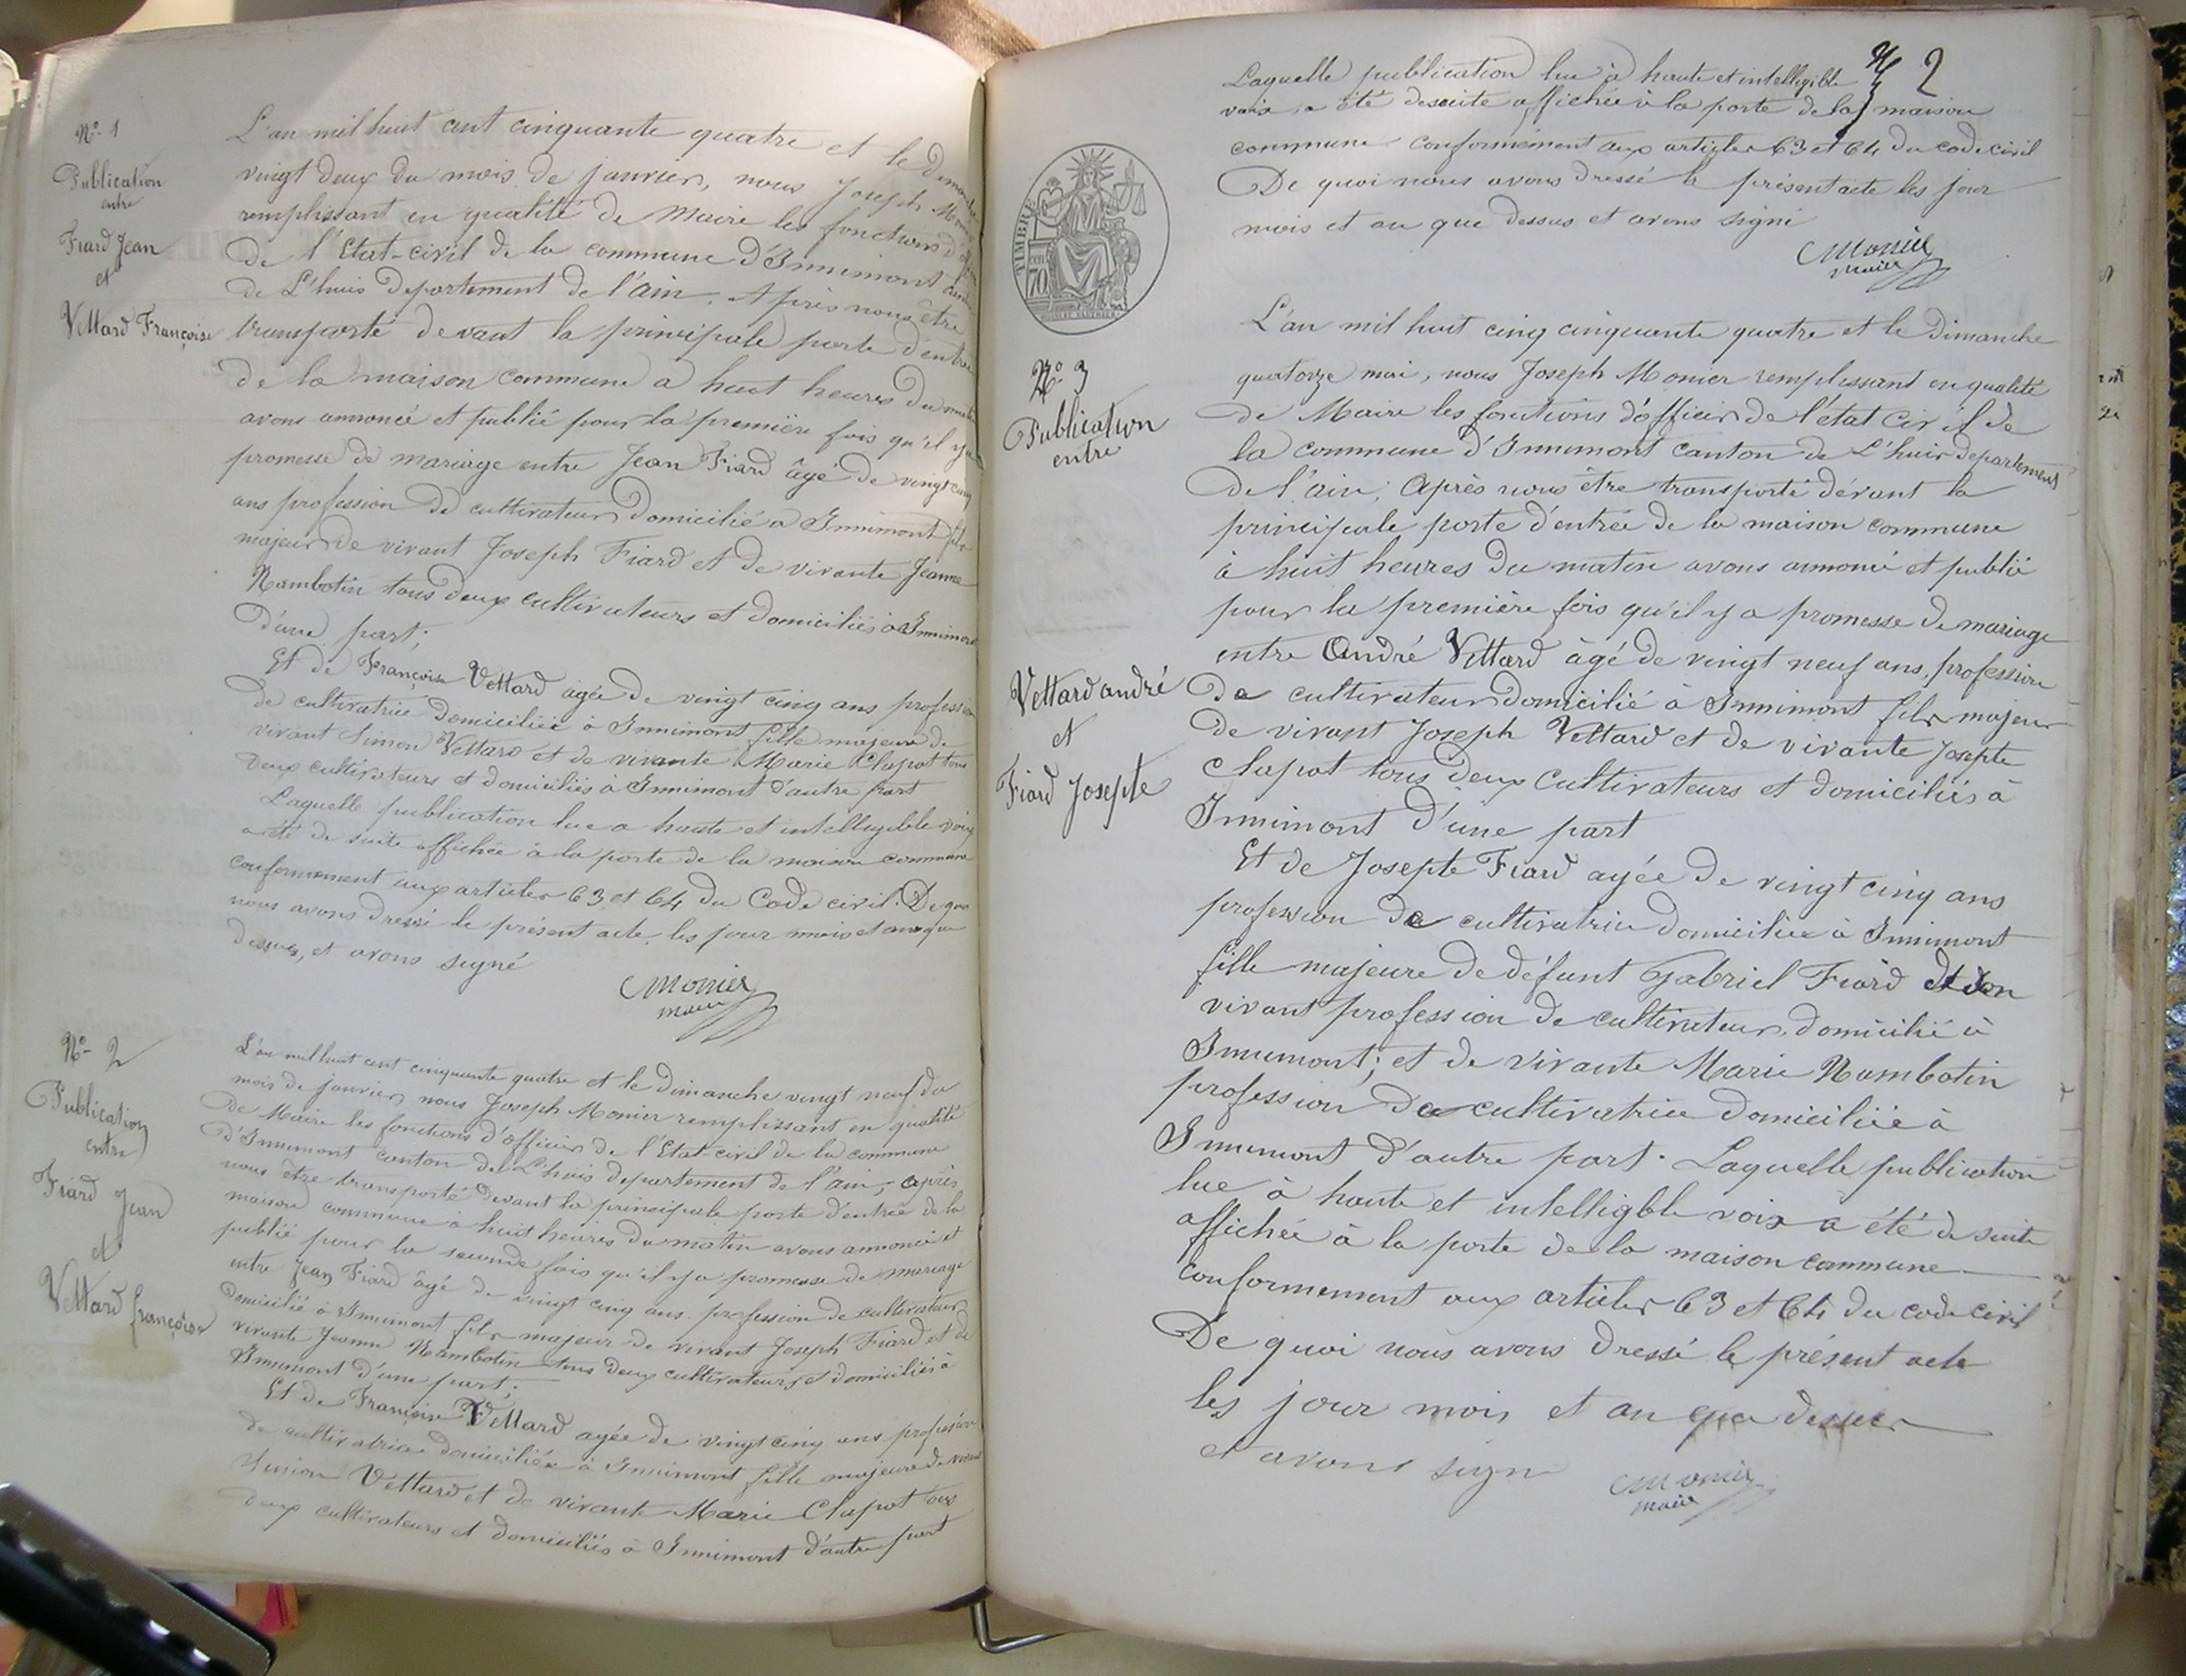 N° 1
Publication
entre
Fiard Jean
et
Vettard Françoise
L'an mil huit cent cinquante quatre et le Dimanche
vingt deux du mois de janvier, nous Joseph Monier
remplissant en qualité de Maire les fonctions d'officier
de l'Etat-civil de la commune d'Innimont canton
de L'huis departement de l'ain. Après nous être
transporté devant la principale porte d'entrée
de la maison commune a huit heures du matin
avons annoncé et publié pour la première fois qu'il y a
promesse de mariage entre Jean Fiard âgé de vingt cinq
ans profession de cultivateur Domicilié a Innimont fils
majeur de vivant Joseph Fiard et de vivante Jeanne
Nambotin tous deux cultivateurs et domiciliés à Innimont
d'une part;
Et de Françoise Vettard agée de vingt cinq ans profession
de cultivatrice domiciliée à Innimont fille majeure de
vivant Simon Vettard et de vivante Marie Clapot tous
deux cultivateurs et domiciliés à Innimont d'autre part
Laquelle publication lue a haute et intelligible voix
a été de suite affichée à la porte de la maison commune
conformement aux articles 63 et 64 du Code civil. De quoi
nous avons dressé le présent acte les jour mois et an que
dessus, et avons signé
Monier
maire
N° 2
Publication
entre
Fiard Jean
et
Vettard françoise
L'an mil huit cent cinquante quatre et le Dimanche vingt neuf du
mois de janvier nous Joseph Monier remplissant en qualité
de Maire les fonctions d'officier de l'Etat civil de la commune
d'Innimont canton de L'huis departement de l'ain; après
nous être transporté devant la principale porte d'entrée de la
maison commune à huit heures du matin avons annoncé et
publié pour la seconde fois qu'il y a promesse de mariage
entre Jean Fiard âgé de vingt cinq ans profession de cultivateur
domicilié à Innimont fils majeur de vivant Joseph Fiard et de
vivante Jeanne Nambotin tous deux cultivateurs et domiciliés à
Innimont d'une part;
Et de Françoise Vettard agée de vingt cinq ans profession
de cultivatrice domiciliée à Innimont fille majeure de vivant
Simon Vettard et de vivante Marie Clapot tous
deux cultivateurs et domiciliés à Innimont d'autre part
2
Laquelle publication lue à haute et intelligible
voix a été desuite affichée à la porte de la maison
commune conformément aux articles 63 et 64 du code civil
De quoi nous avons dressé le présent acte les jour
mois et an que dessus et avons signé
Monier
maire
TIMBRE
70
N° 3
Publication
entre
Vettard andré
et
Fiard Josepte
L'an mil huit cinq cinquante quatre et le Dimanche
quatorze mai, nous Joseph Monier remplissant en qualité
de Maire les fonctions d'officier de l'état civil de
la commune d'Innimont canton de L'huis departement
de l'ain; Après nous être transporté dévant la
principale porte d'entrée de la maison commune
à huit heures du matin avons annoncé et publié
pour la première fois qu'il y a promesse de mariage
entre André Vettard âgé de vingt neuf ans, profession
de cultivateur domicilié à Innimont fils majeur
de vivant Joseph Vettard et de vivante Josepte
Clapot tous deux cultivateurs et domiciliés à
Innimont d'une part
Et de Josepte Fiard agée de vingt cinq ans
profession de cultivatrice domiciliée à Innimont
fille majeure de défunt Gabriel Fiard de son
vivant profession de cultivateur domicilié à
Innimont; et de vivante Marie Nambotin
profession de cultivatrice domiciliée à
Innimont d'autre part. Laquelle publication
lue à haute et intelligble voix a été de suite
affichée à la porte de la maison commune
conformement aux articles 63 et 64 du code civil
De quoi nous avons dressé le présent acte
les jour mois et an que dessus
et avons signé
Monier
maire